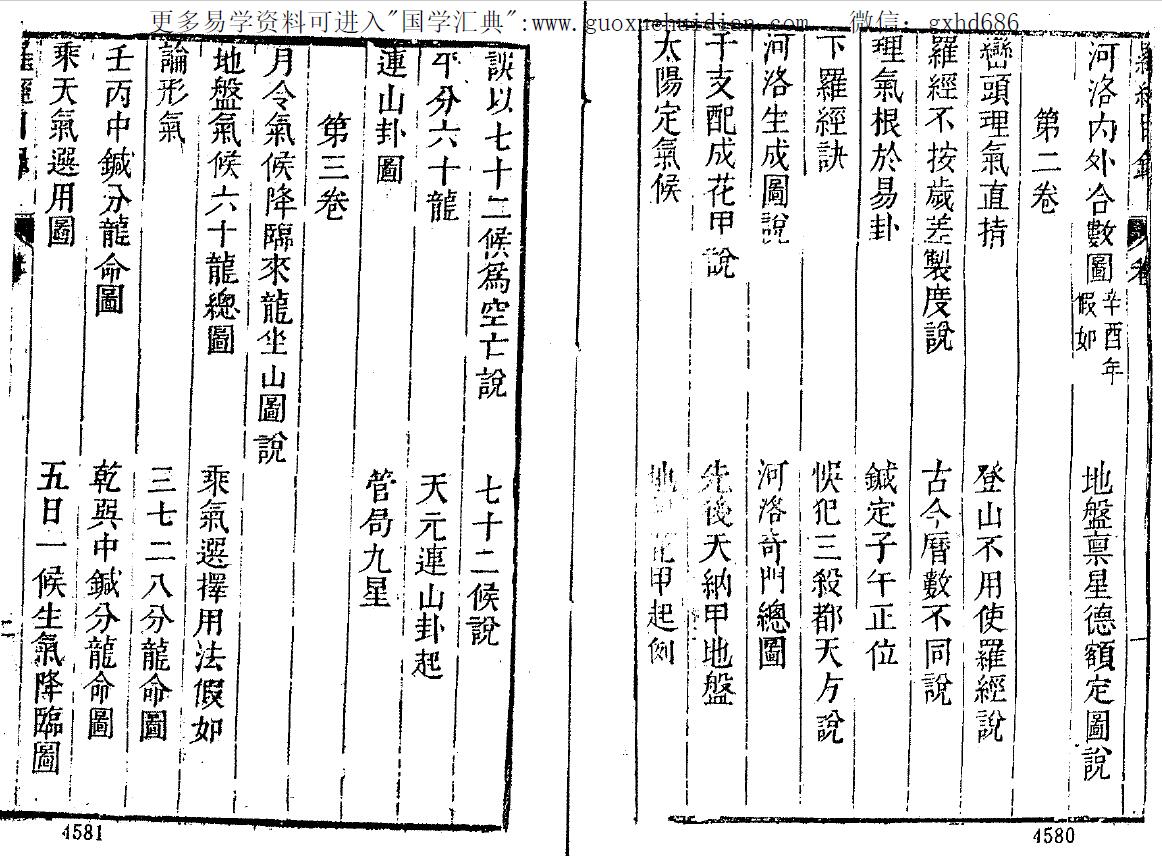 更多易学资料可进入"国学汇典":www.guoxuehuidian.com 微信：gxhd686
河洛內外合數圖 辛酉年假如 地盤稟星德額定圖說
第二卷
巒頭理氣直捂 登山不用使羅經說
羅經不按歲差製度說 古今曆數不同說
理氣根於易卦 鍼定子午正位
下羅經訣 悞犯三殺都天方說
河洛生成圖說 河洛奇門總圖
干支配成花甲說 先後天納甲地盤
太陽定氣候 花甲起例
4580
誤以七十二候為空亡說 七十二候說
平分六十龍 天元連山卦起
連山卦圖 管局九星
第三卷
月令氣候降臨來龍坐山圖說
地盤氣候六十龍總圖 乘氣選擇用法假如
論形氣 三七二八分龍命圖
壬丙中鍼分龍命圖 乾巽中鍼分龍命圖
乘天氣選用圖 五日一候生氣降臨圖
二
4581